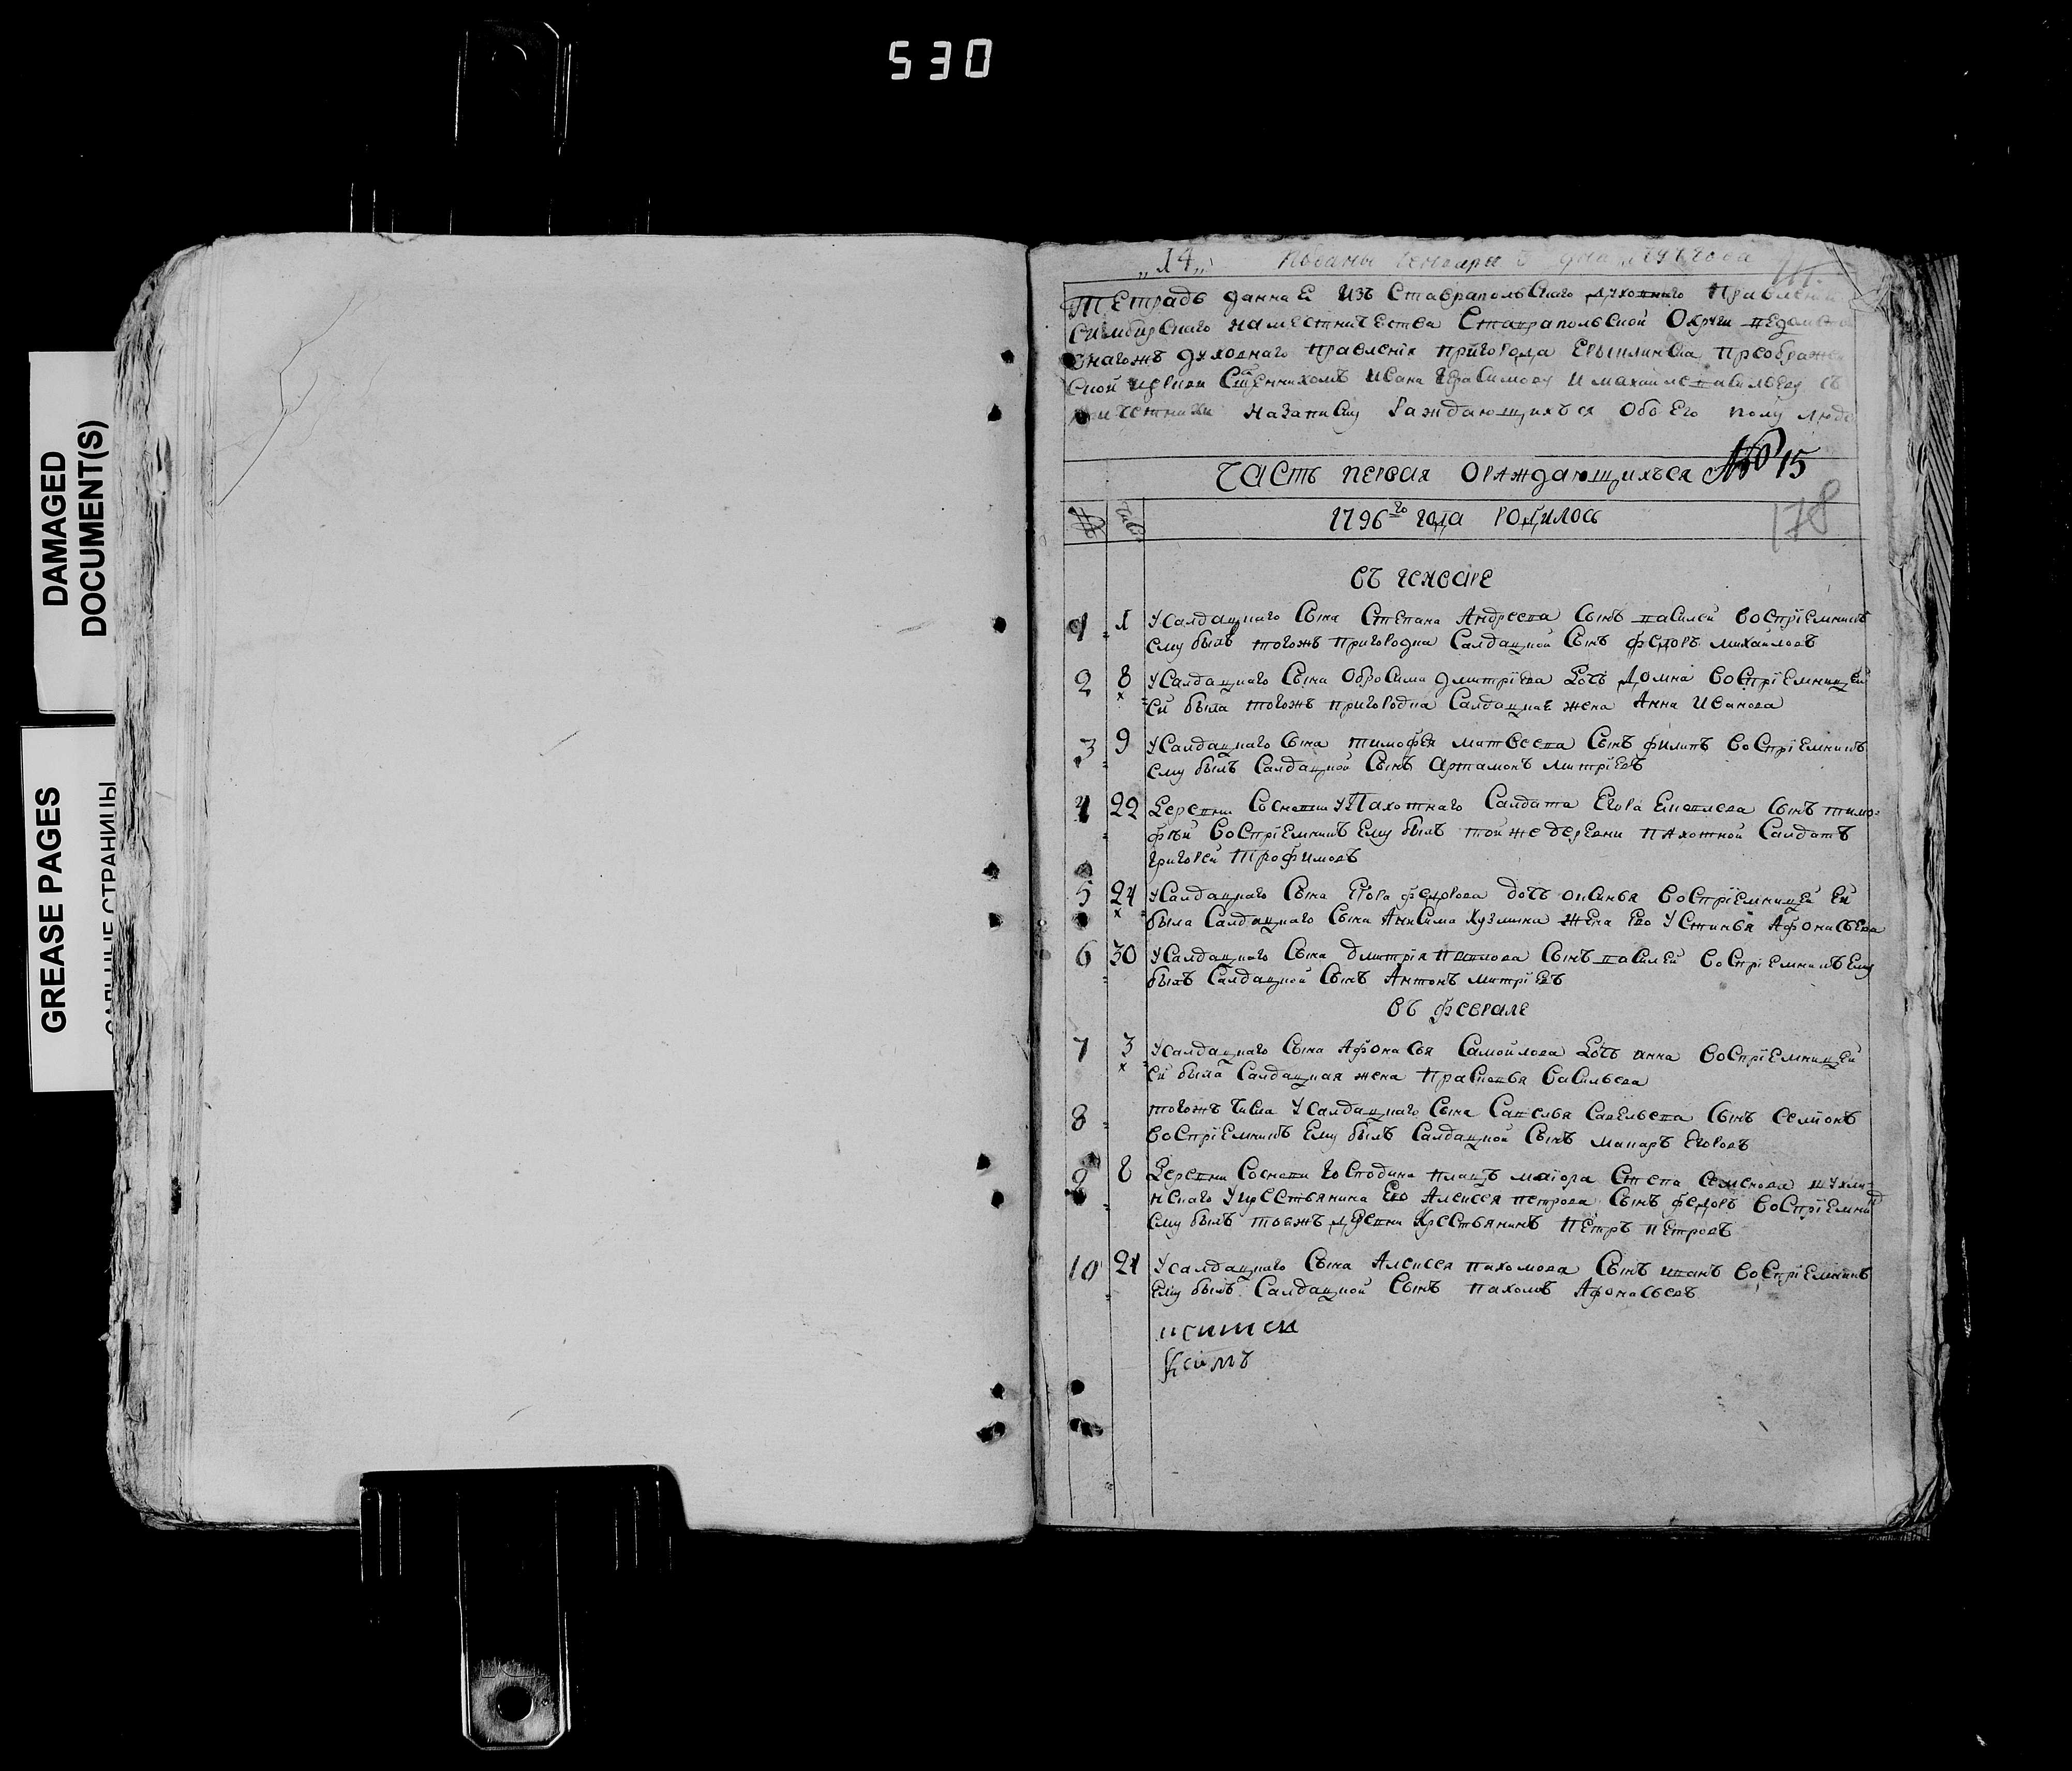 530
DAMAGED
DOCUMENT(S)
GREASE PAGES
СТРАНИЦЫ
„14„ Поданы генваря дня года
Тетрадь данная изъ Ставрапольскаго духовнаго Правления
Симбирскаго наместничества Ставрапольской Округи ведомства
онагожъ духовнаго правления пригорода Ерыклинска Преображен
ской церкви Сщенникомъ Ивани Герасимову и михаиле василеву съ
причетники назаписку раждающихъся обоего полу люде
Часть первая ораждающихъся № 15
№ число 1796го года родилось 178
въ генваре
1 1 У Салдацкаго Сына Степана Андреева Сынъ василей воспріемникъ
ему былъ тогожъ пригородка Салдацкой Сынъ федоръ михайловъ
2 8 У Салдацкаго Сына обросима дмитріева Дочь Домна воспріемницей
ей была тогожъ пригородка Салдацкая жена Анна Иванова
3 9 У Салдацкаго Сына тимофея матвеева Сынъ филипъ воспріемникъ
ему былъ Салдацкой Сынъ артамонъ митріевъ
4 22 Деревни Сосневки У Пахотнаго Салдата Егора Сынъ тимо-
фей воспріемникъ Ему былъ тойже деревни пахотной Салдатъ
григорей Трофимовъ
5 24 У Салдацкаго Сына Егора федорова дочь оксинья воспріемницей ей
была Салдацкаго Сына Аникима Кузмина жена Ево Устинья Афонасьева
6 30 У Салдацкаго Сына дмитрія павлова Сынъ василей воспріемникъ Ему
былъ Салдацкой Сынъ Антонъ митріевъ
въ феврале
7 3 У Салдацкаго Сына Афонасья Самойлова Дочь анна воспріемницей
ей была Салдацкая жена Прасковья васильева
8 тогожъ числа У Салдацкаго Сына Савелья Савельева Сынъ Семионъ
воспріемникъ Ему былъ Салдацкой Сынъ макаръ Егоровъ
9 8 Деревни Сосневки Господина плацъ маіора Степа Семенова
нскаго У крестьянина Ево Алексея петрова Сынъ федоръ воспріемник
ему былъ тоежъ деревни крестьянинъ петръ петровъ
10 21 У Салдацкаго Сына Алексея пахомова Сынъ иванъ воспріемникъ
Ему былъ Салдацкой Сынъ пахомъ Афонасьевъ